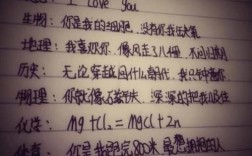 I Love You
生物：你是我的细胞，没有你我
地理：我喜欢你，像风走了八千里，不问归期
历史：无论穿越回什么朝代，我只钟意你
物理：你就像磁铁，深深的把我吸住
化学：Mg+Cl₂=MgCl+2n
体育：你是我跑完800米最想拥抱的人